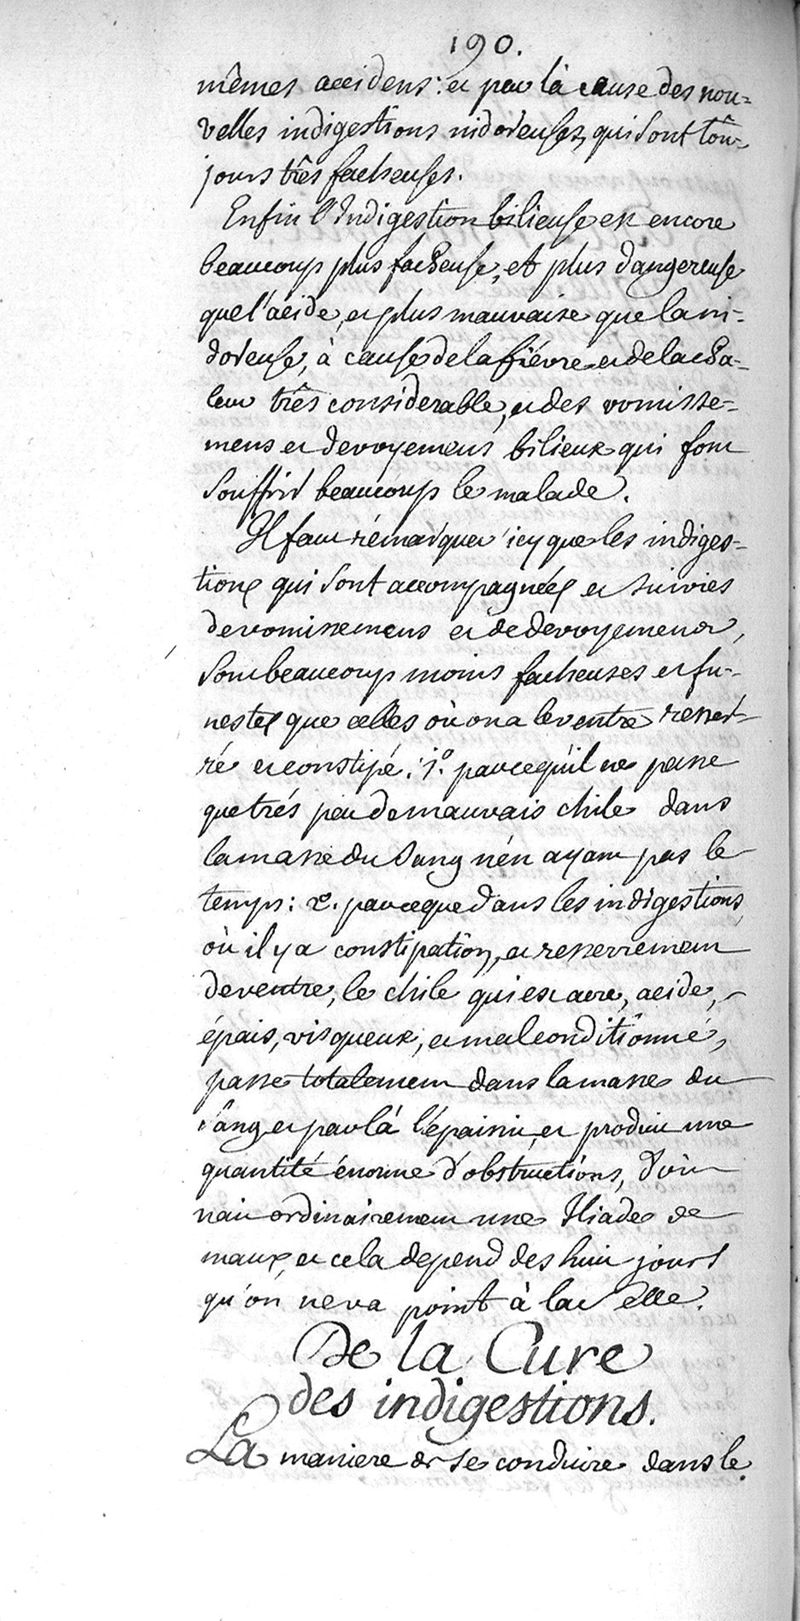 190.
mêmes accidens: et par là cause des nou=
velles indigestions nidoreuses, qui sont toû=
jours três facheuses.
Enfin l'Indigestion bilieuse est encore
beaucoup plus facheuse, et plus dangereuse
que l'acide, et plus mauvaise que la ni=
doreuse, à cause de la fiévre et de la cha=
leur três considerable, et des vomisse=
mens et devoyemens bilieux qui font
souffrir beaucoup le malade.
Il faut rémarquer icy que les indiges=
tions qui sont accompagnées et suivies
de vomissemens et de devoyement,
sont beaucoup moins facheuses et fu=
nestes que celles où on a le ventre resser=
ré et constipé. 1.° parcequ'il ne passe
que trés peu de mauvais chile dans
la masse du sang n'én ayant pas le
temps: 2.° parceque dans les indigestions,
où il y a constipation, et resserrement
de ventre, le chile qui est acre, acide,
épais, visqueux, et mal conditionné,
passe totalement dans la masse du
sang et par là l'épaissit, et produit une
quantité énorme d'obstructions, d'où
nait ordinairement une Iliade de
maux, et cela depend des huit jours
qu'on ne va point à la selle.
De la Cure
des indigestions.
La maniere de se conduire dans le